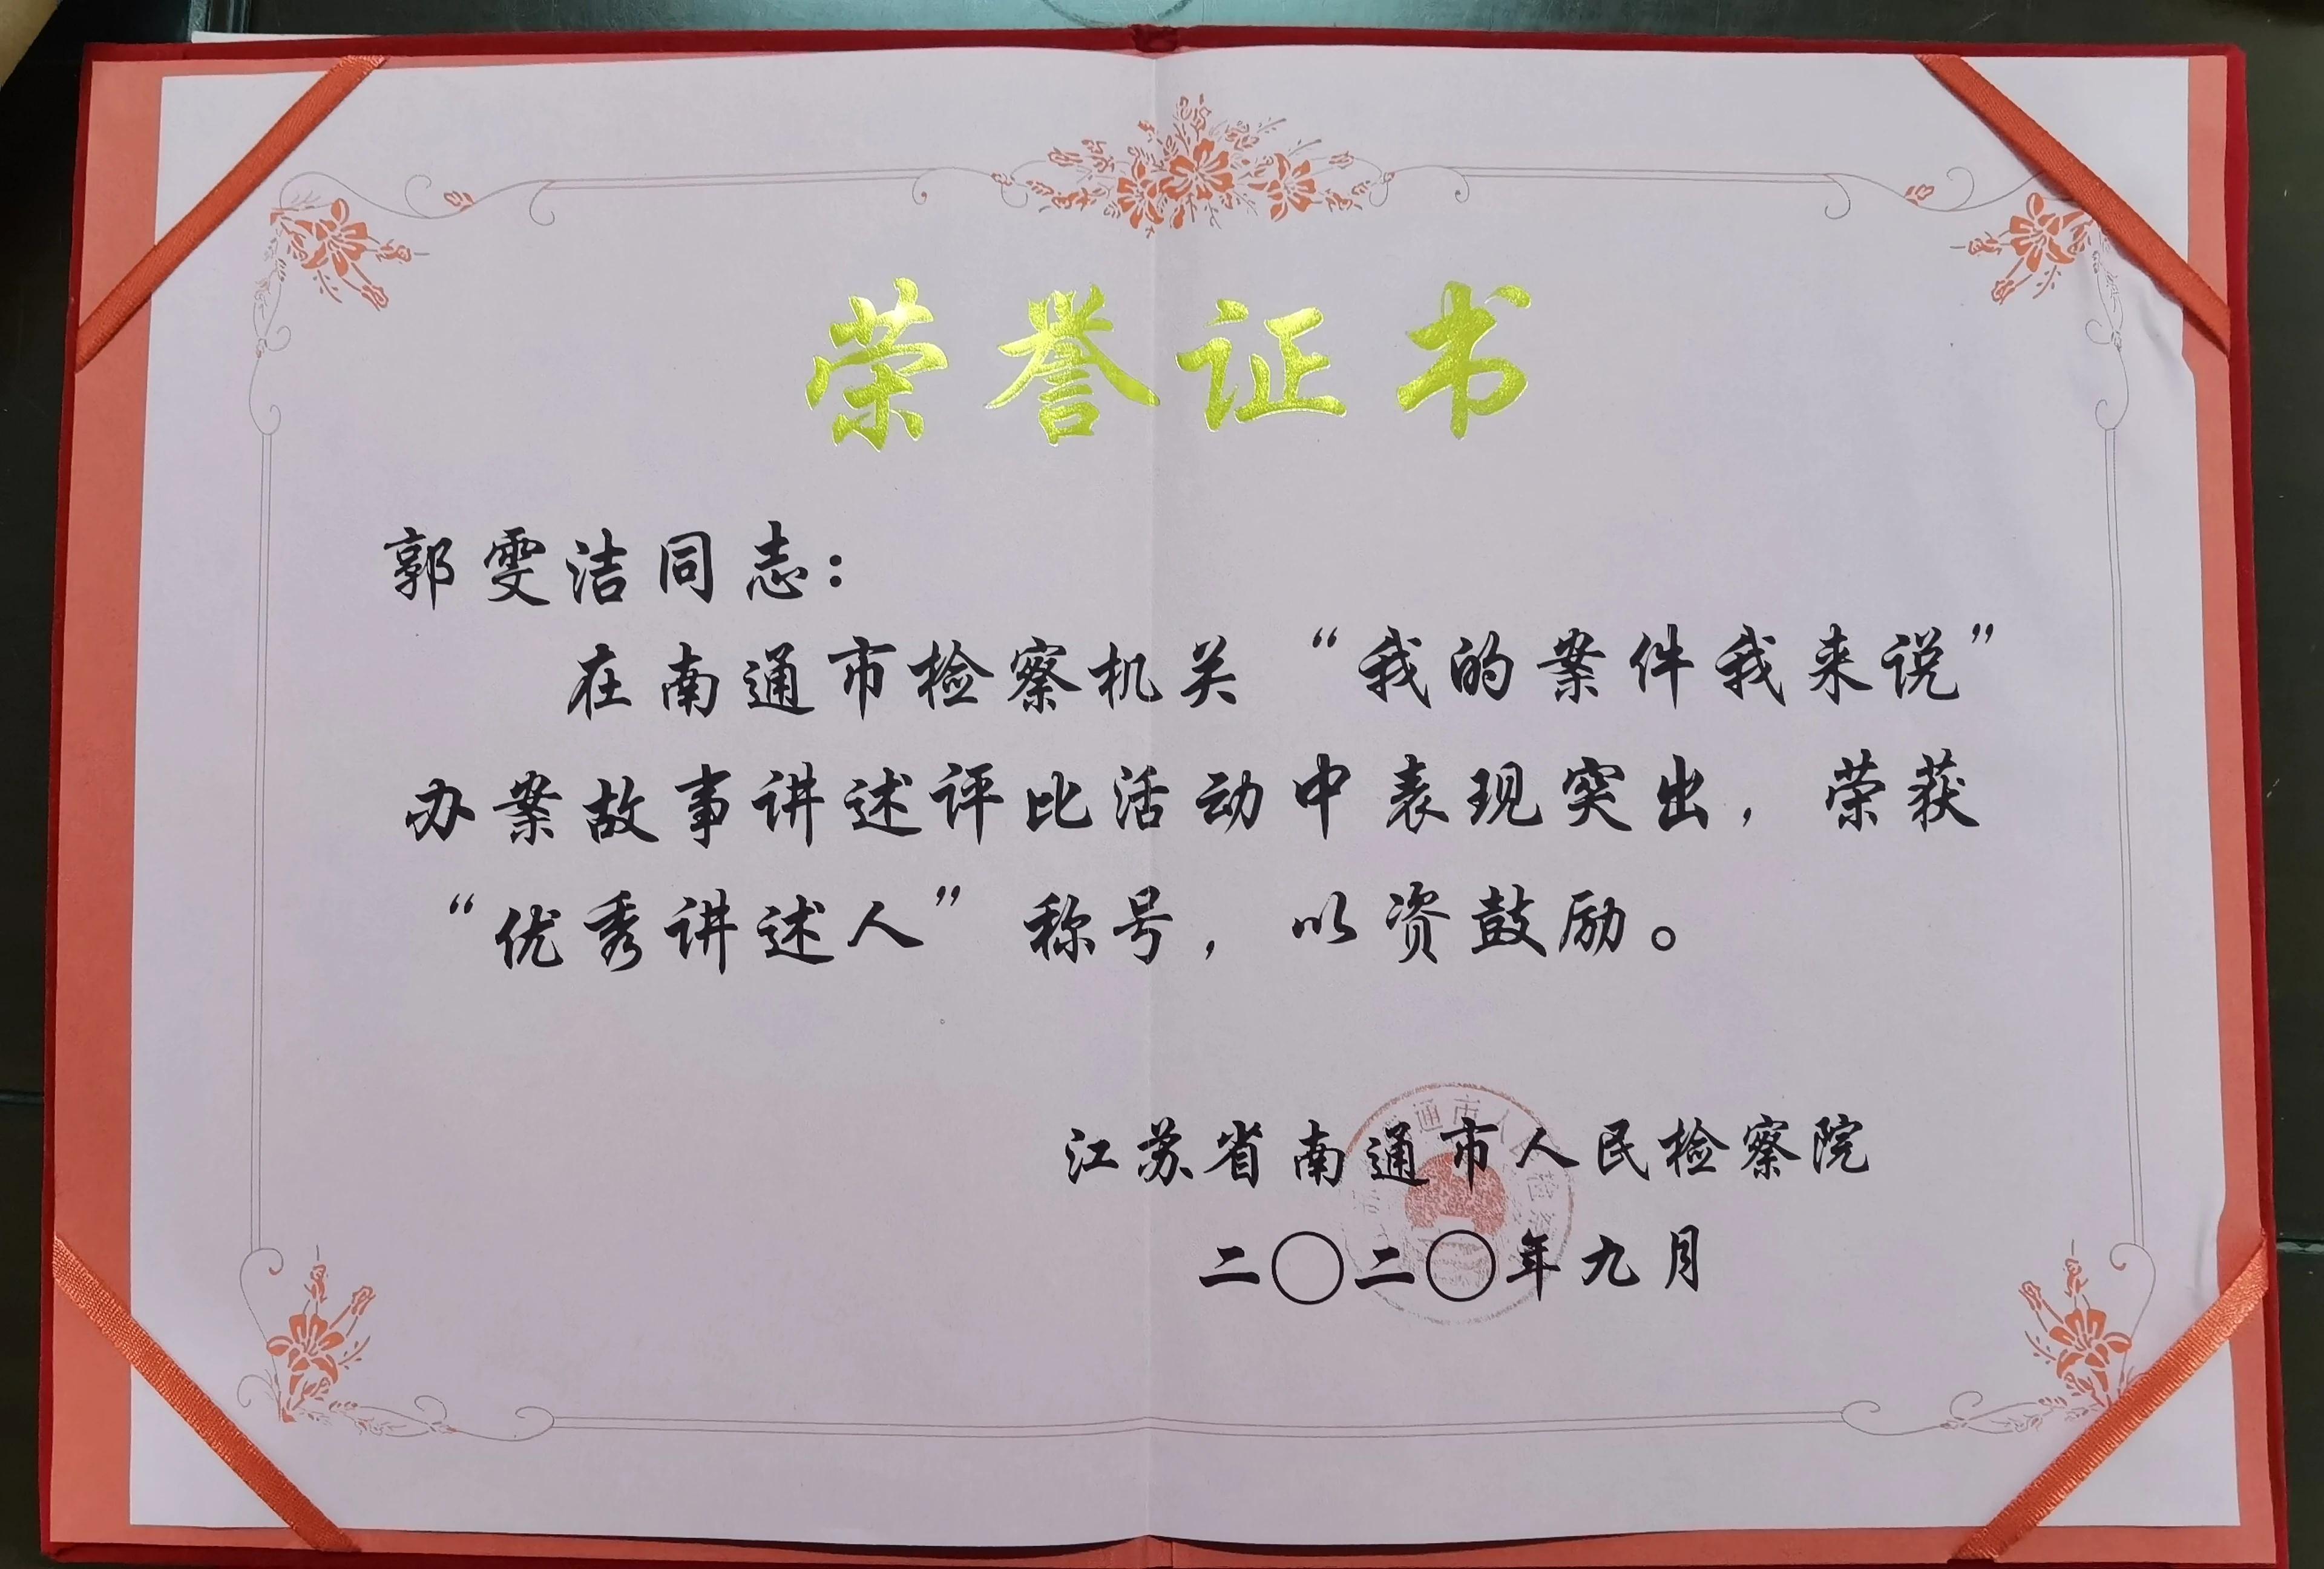 荣誉证书
郭雯洁同志：
在南通市检察机关“我的案件我来说”
办案故事讲述评比活动中表现突出，荣获
“优秀讲述人”称号，以资鼓励。
江苏省南通市人民检察院
二〇二〇年九月